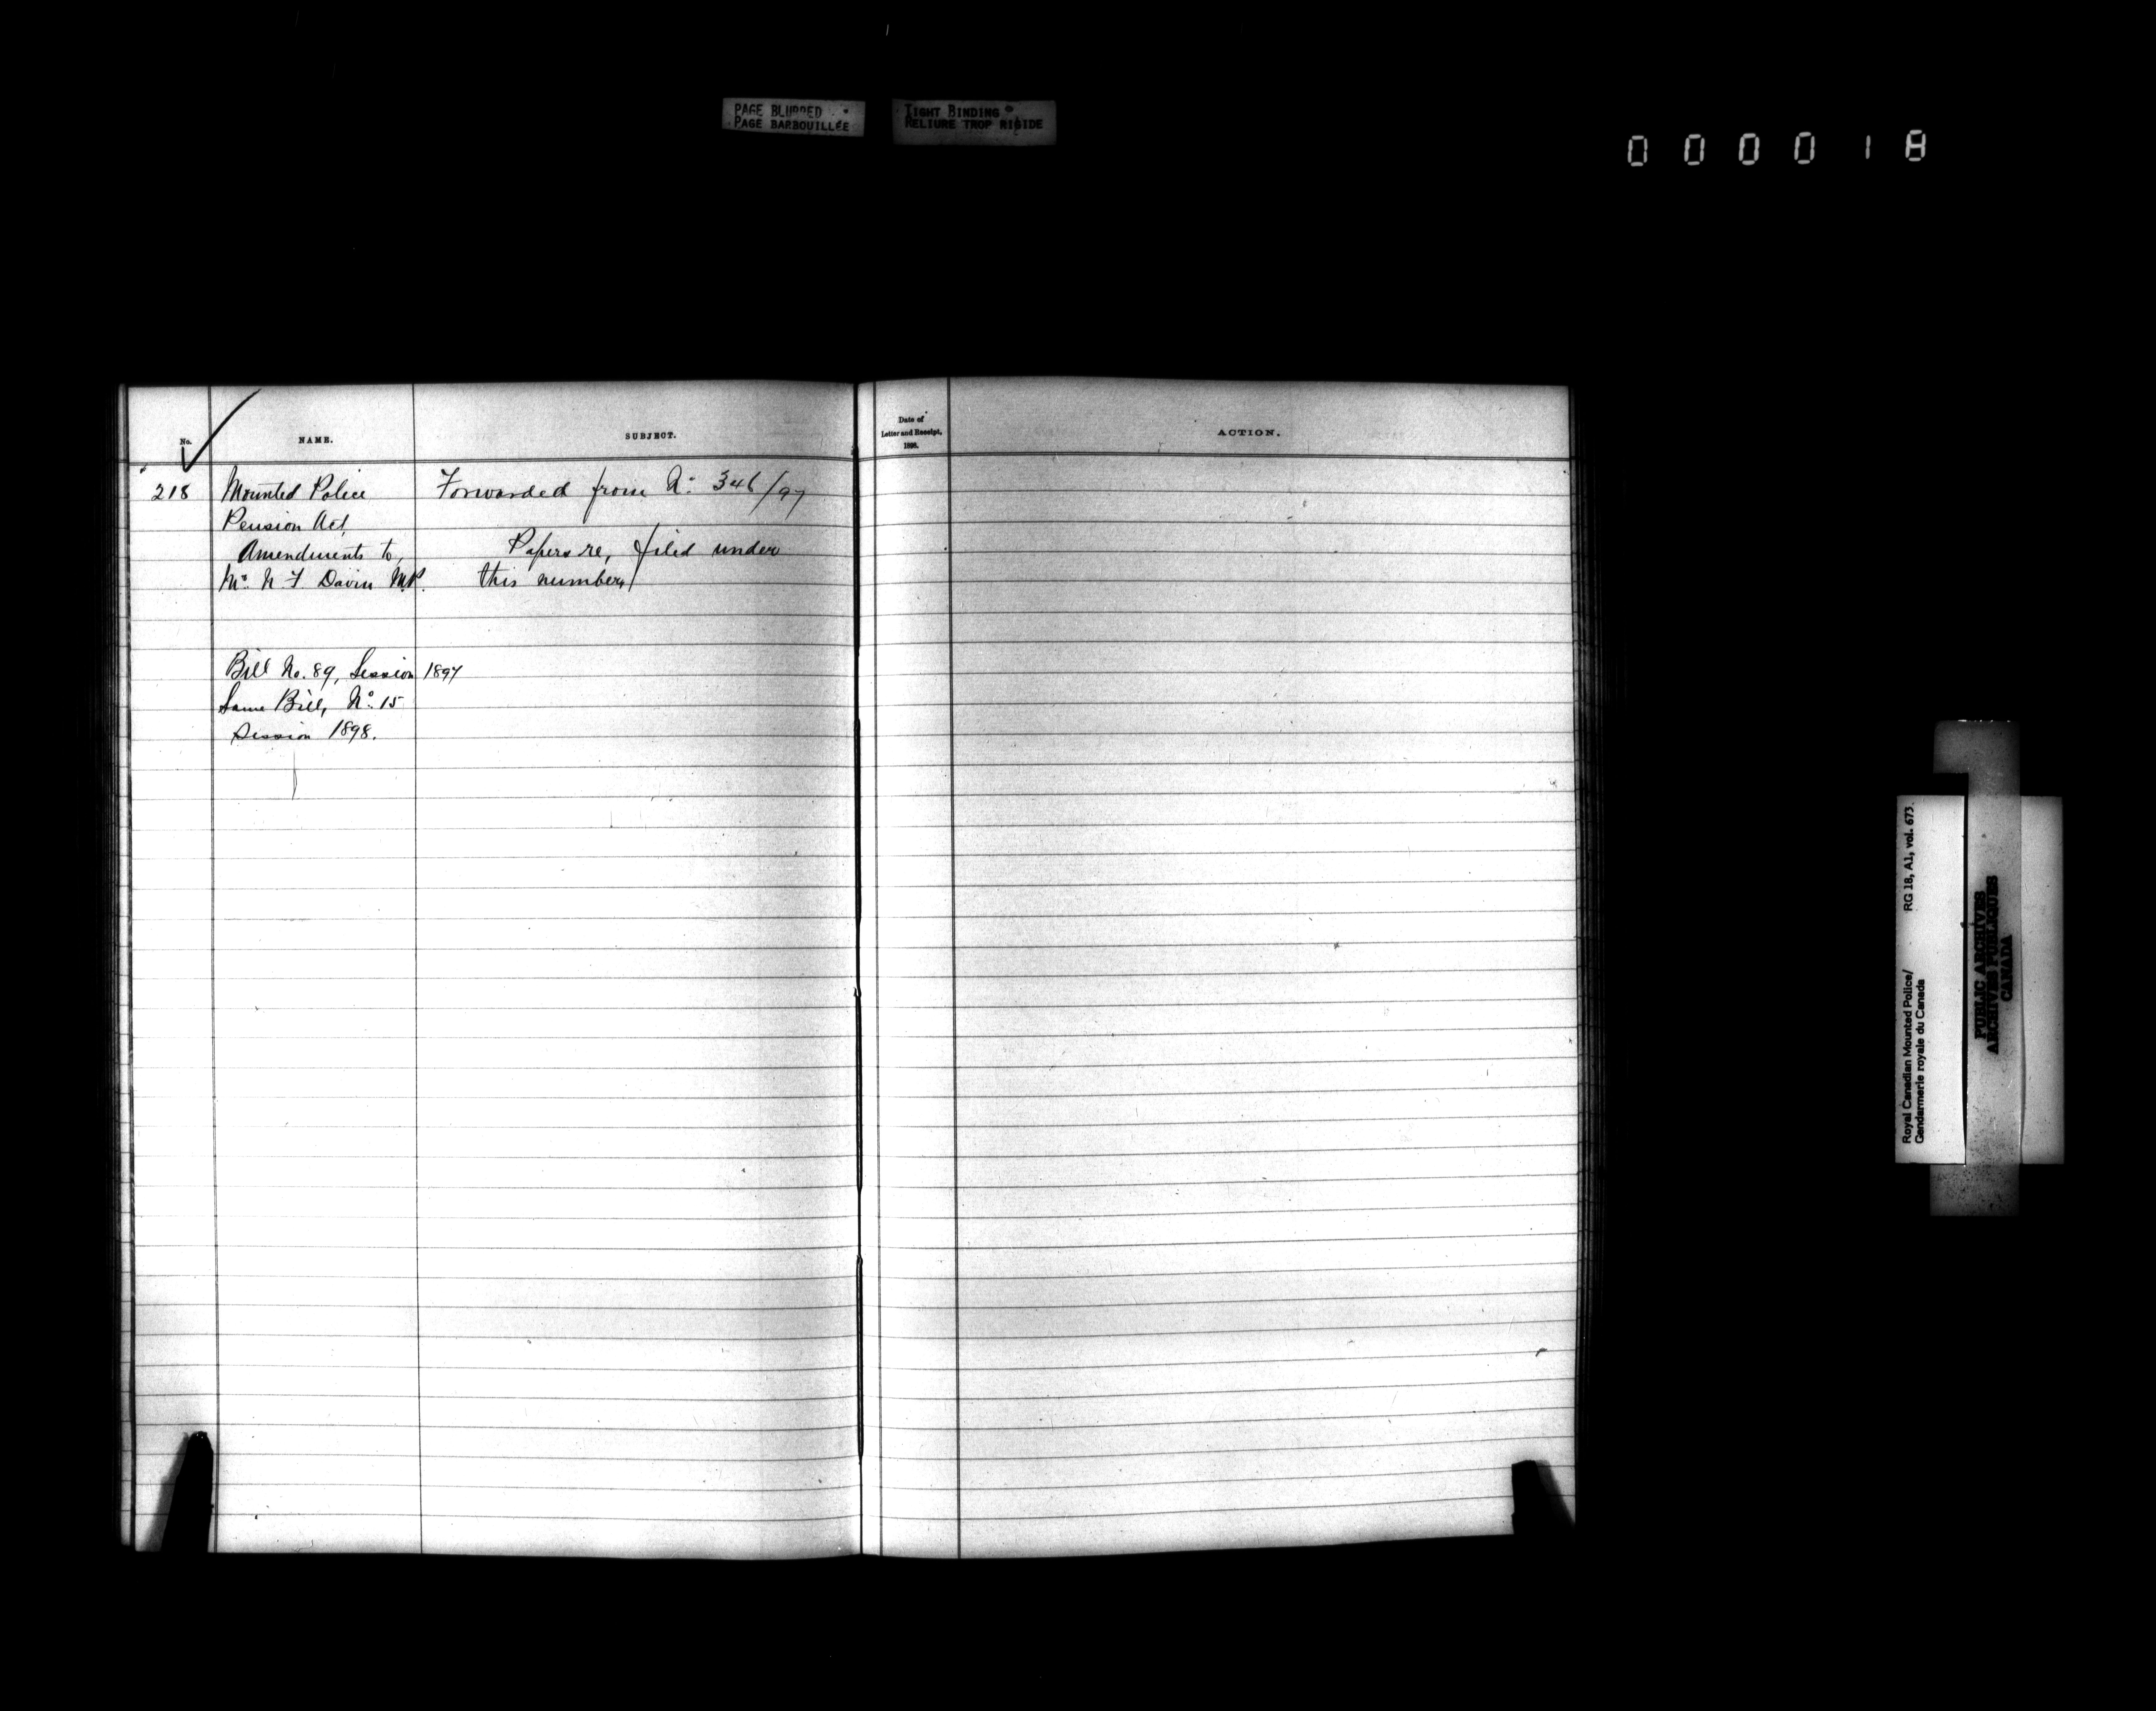 PAGE BLURRED
PAGE BARBOUILLÉE
TIGHT BINDING
RELIURE TROP RIGIDE
000018
No.
NAME.
SUBJECT.
Date of
Letter and Receipt,
1898.
ACTION.
218 Mounted Police Forwarded from No. 346/97
Pension Act,
Amendments to, Papers re, filed under
Mr. N. F. Davin M.P. this number
Bill No. 89, Session 1897
Same Bill, No. 15
Session 1898.
Royal Canadian Mounted Police/ RG 18, A1, vol. 673
Gendarmerie royale du Canada
PUBLIC ARCHIVES
ARCHIVES PUBLIQUES
CANADA